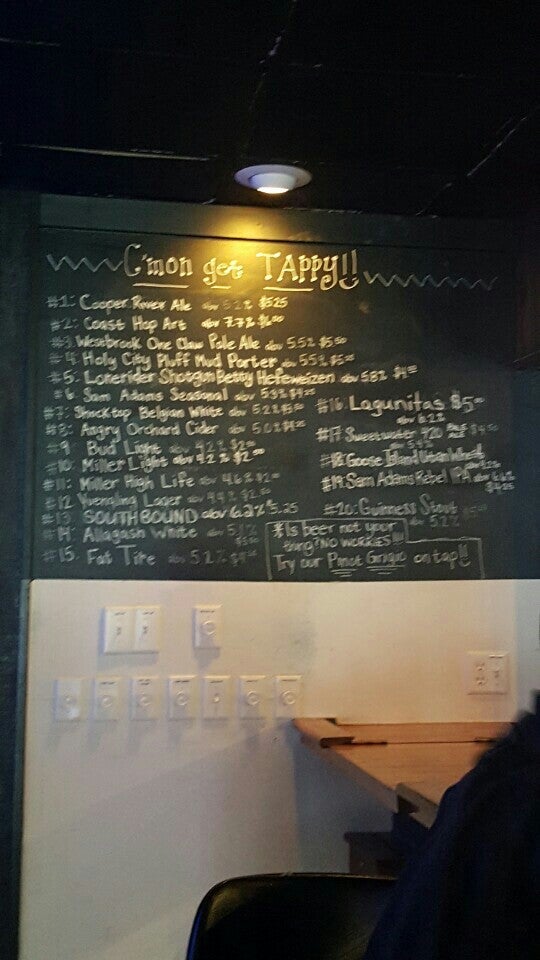 C'mon get TAPPY!!
#1: Cooper River Ale abv 5.2% $5.25
#2: Coast Hop Art abv 7.7% $6.00
#3 Westbrook One Claw Pale Ale abv 5.5% $5.50
#4 Holy City Pluff Mud Porter abv 5.5%
#5: Lonerider Shotgun Betty Hefeweizen abv 5.8%
#6: Sam Adams Seasonal abv 5.3%
#7: Shocktop Belgian White abv 5.2%
#8: Angry Orchard Cider abv 5.0%
#9 Bud Light abv 4.2% $2.00
#10: Miller Light abv 4.2% $2.00
#11: Miller High Life abv 4.6% $2.00
#12 Yuengling Lager abv 4.4% $2.00
#13 SOUTHBOUND abv 6.2% 5.25
#14: Allagash White abv
#15 Fat Tire abv 5.2%
#16 Lagunitas $5.00
abv 6.2%
#17 Sweetwater 420
#18: Goose Island Urban Wheat
#19: Sam Adams Rebel IPA
#20: Guinness Stout
abv 5.2%
*Is beer not your
thing? NO WORRIES!!!
Try our Pinot Grigio on tap!!